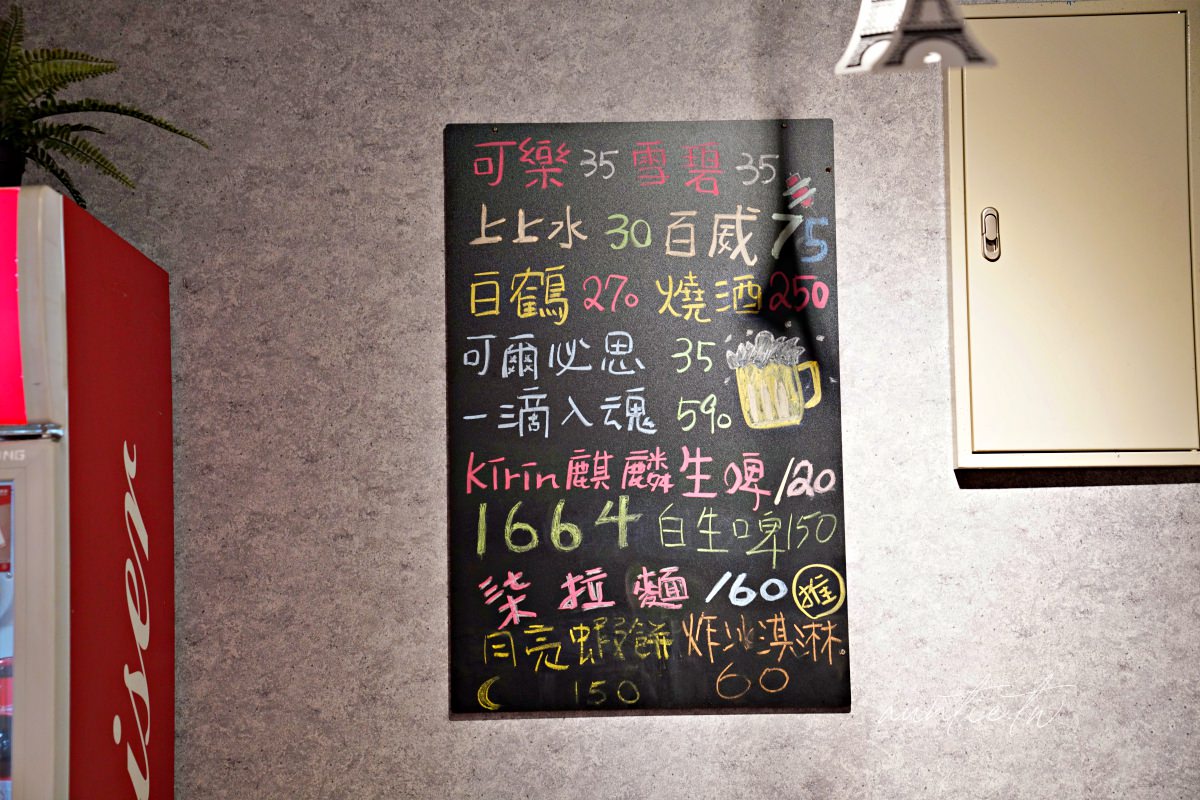 可樂 35 雪碧 35
上上水 30 百威 75
白鶴 270 燒酒 250
可爾必思 35
一滴入魂 590
Kirin麒麟生啤 120
1664 白生啤 150
柒拉麵 160 推
月亮蝦餅 炸冰淇淋
150 60
isen